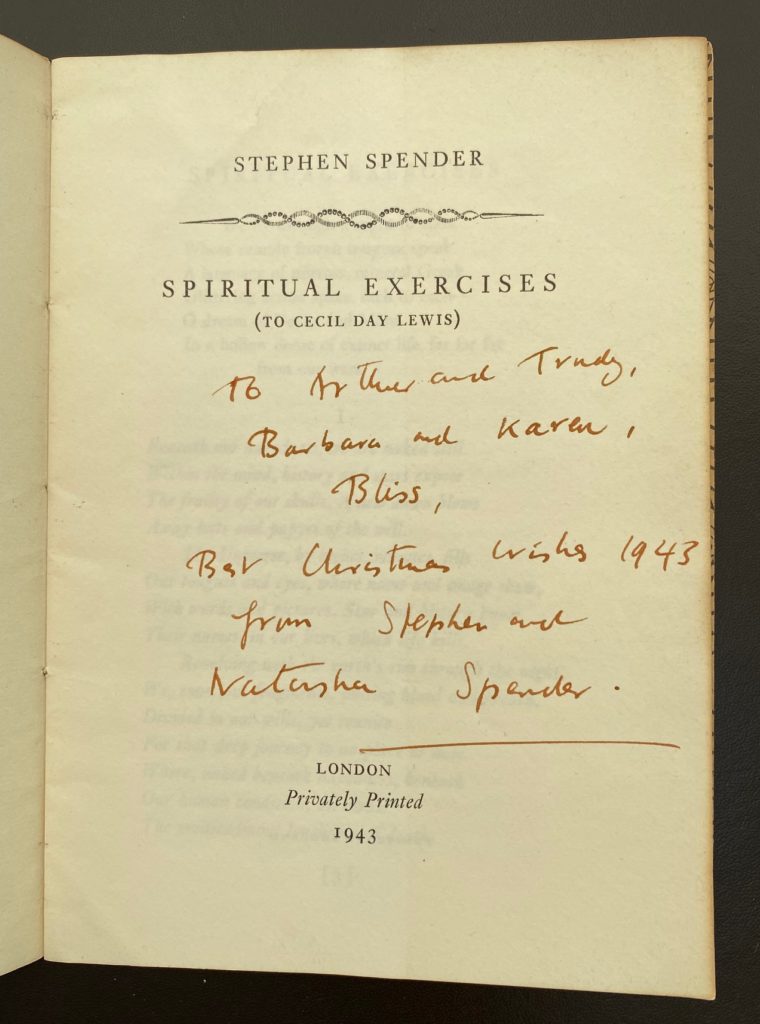 STEPHEN SPENDER
SPIRITUAL EXERCISES
(TO CECIL DAY LEWIS)
to Arthur and Trudy,
Barbara and Karen,
Bliss,
Best Christmas Wishes 1943
from Stephen and
Natasha Spender.
LONDON
Privately Printed
1943